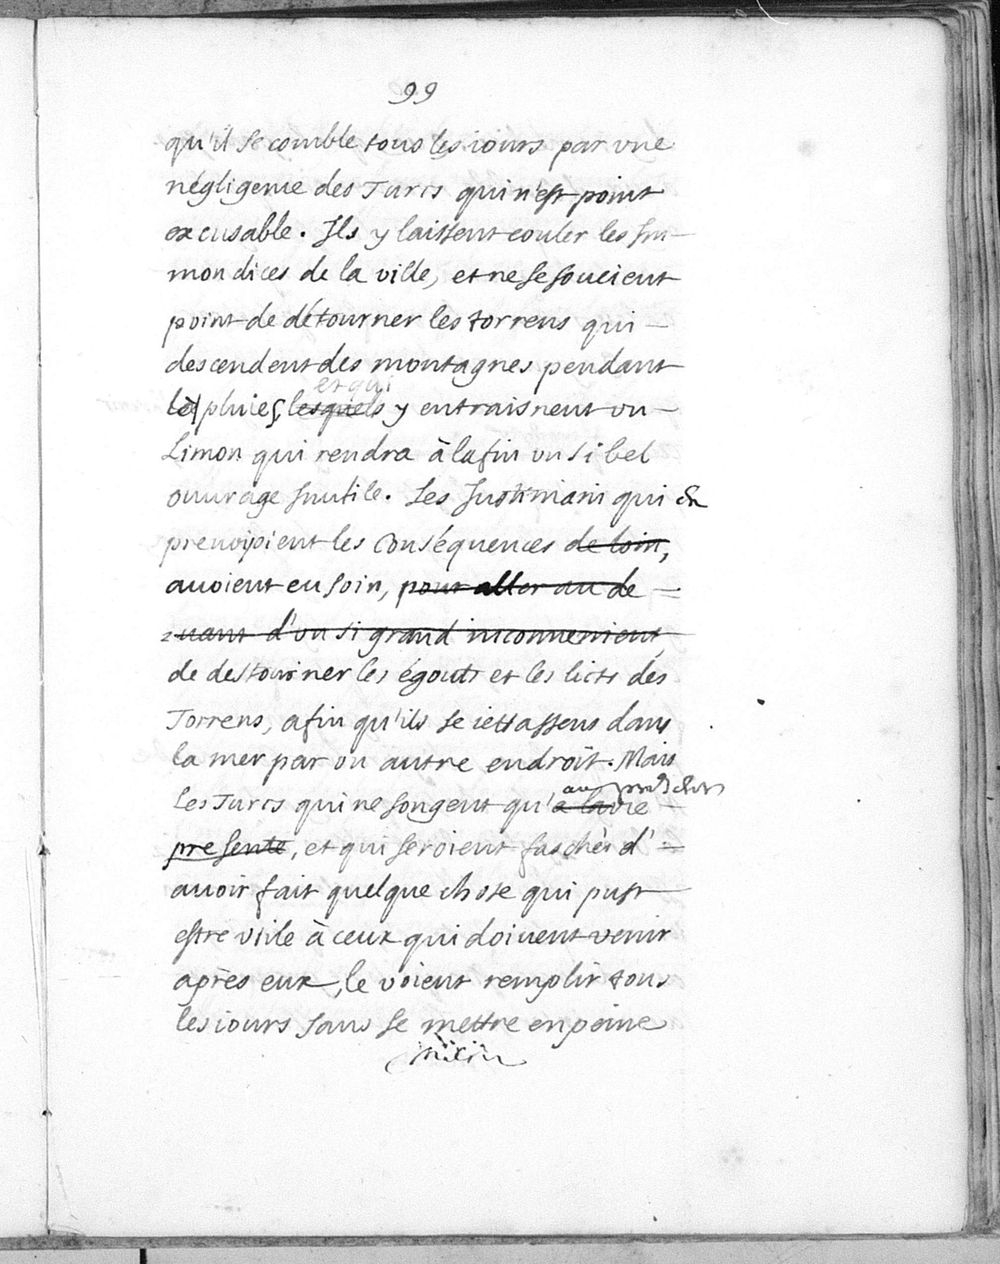 99
qu'il se comble tous les iours par vne
négligence des Turcs qui n'est point
excusable. Ils y laissent couler les Im-
mondices de la ville, et ne se soucient
point de détourner les torrens qui
descendent des montagnes pendant
et qui
les pluies, lesquels y entraisnent vn
Limon qui rendra à la fin vn si bel
ouurage Inutile. Les Justinianis qui en
preuoyoient les conséquences de loin,
auoient eu soin, pour aller au de
uant d'vn si grand inconuenient,
de destourner les égouts et les licts des
Torrens, afin qu'ils se iettassent dans
la mer par vn autre endroit. Mais
au
Les Turcs qui ne songent qu'a la vie
presente, et qui seroient faschés d'
auoir fait quelque chose qui pust
estre vtile à ceux qui doiuent venir
après eux, le voient remplir tous
les iours sans se mettre en peine